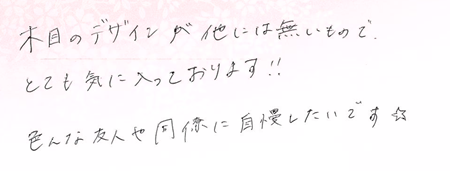 木目のデザインが他には無いもので、
とても気に入っております!!
色んな友人や同僚に自慢したいです☆